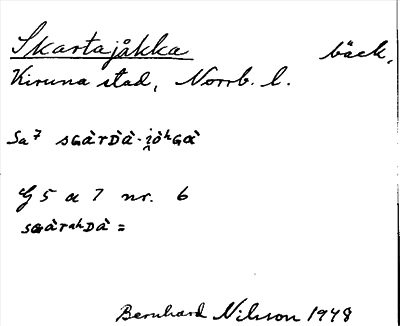 Skartajåkka bäck,
Kiruna stad, Norrb. l.
Sa 7 sGàrDà-i̯òʰGà
G 5 a 7 nr. 6
sGàrᵃʰDà =
Bernhard Nilsson 1948